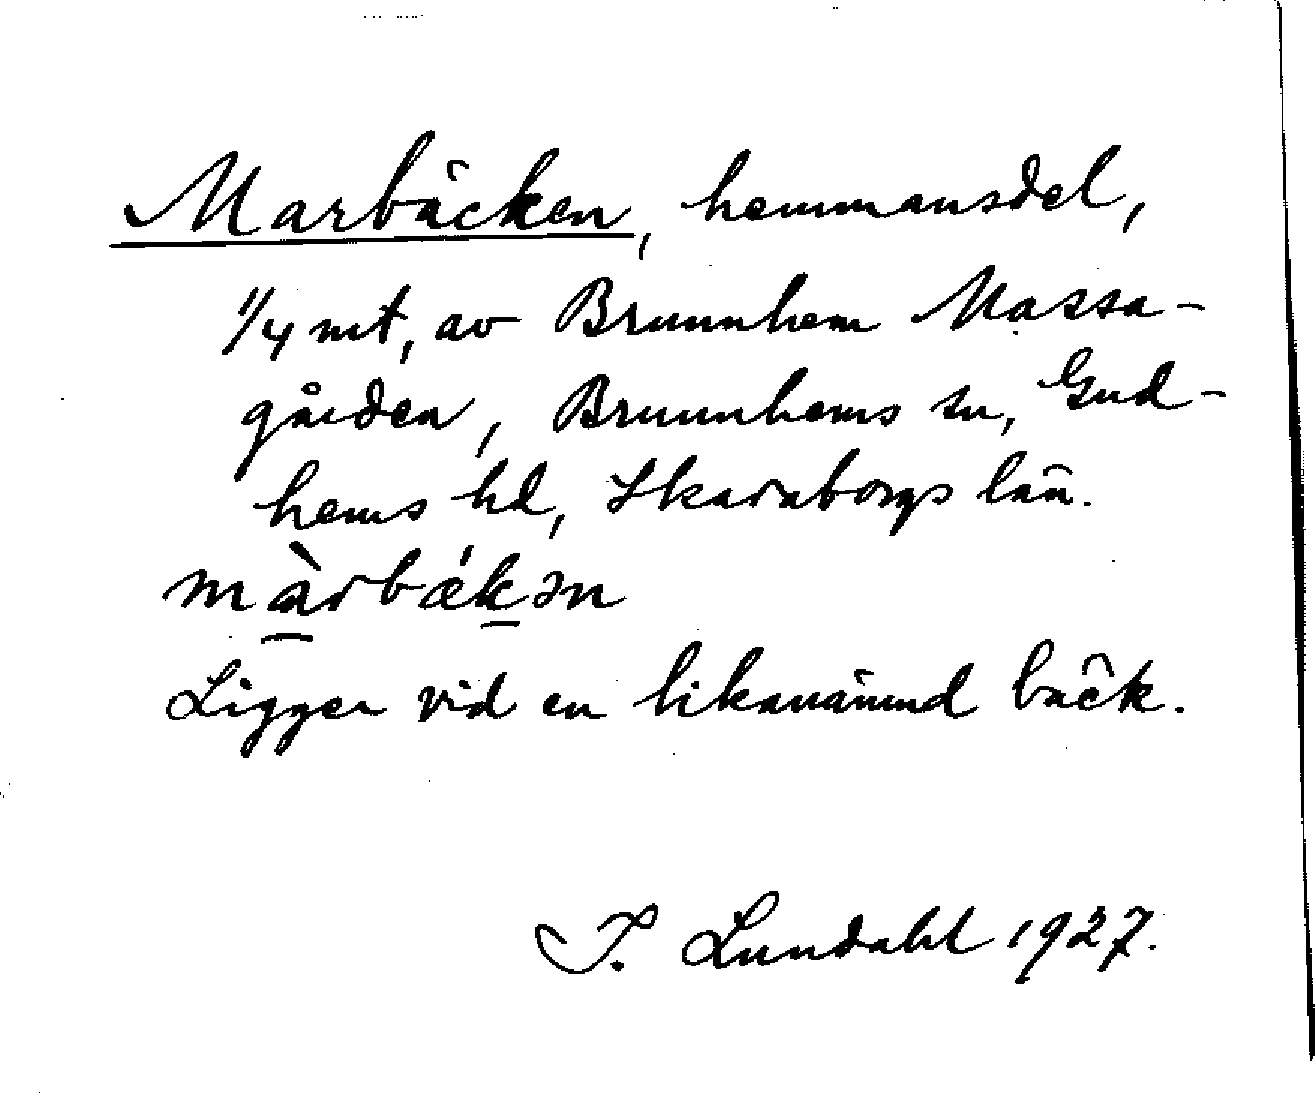 Marbäcken, hemmansdel,
1/4 mt, av Brunnhem Massa-
gården, Brunnhems sn, Gud-
hems hd, Skaraborgs län.
màrbǽkən
Ligger vid en likanämnd bäck.
I. Lundahl 1927.